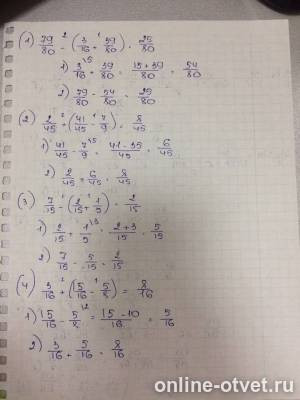 (1) 79/80 - (3/16 + 39/80) = 25/80
1) 3/16 + 39/80 = 15+39/80 = 54/80
2) 79/80 - 54/80 = 25/80
(2) 2/45 + (41/45 - 7/9) = 8/45
1) 41/45 - 7/9 = 41-35/45 = 6/45
2) 2/45 + 6/45 = 8/45
(3) 7/15 - (2/15 + 1/5) = 2/15
1) 2/15 + 1/5 = 2+3/15 = 5/15
2) 7/15 - 5/15 = 2/15
(4) 3/16 + (15/16 - 5/8) = 8/16
1) 15/16 - 5/8 = 15-10/16 = 5/16
2) 3/16 + 5/16 = 8/16
online-otvet.ru